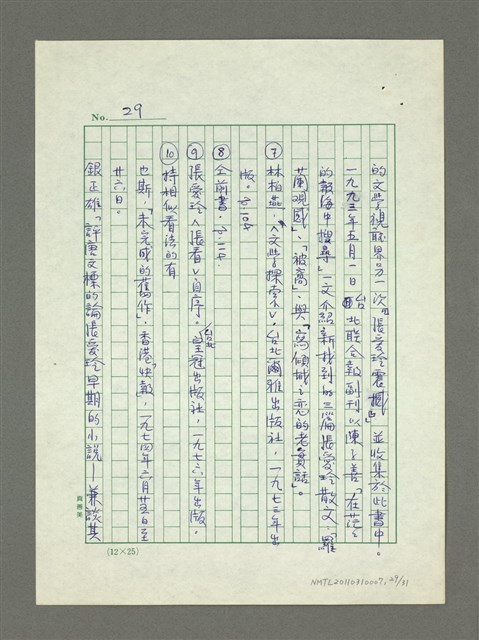 No. 29
的文學視聽界另一次「張愛玲震撼」並收集於此書中。
一九九三年五月一日台北聯合報副刊以陳子善「在茫茫
的報海中搜尋」一文介紹新找到的三篇張愛玲散文「羅
蘭觀感」、「被窩」、與「寫傾城之戀的老實話」。
⑦林柏燕,<文學探索>,台北爾雅出版社,一九七三年出
版。
⑧仝前書,
⑨張愛玲<張看>自序。台北皇冠出版社,一九七六年出版,
⑩持相似看法的有
也斯,「未完成的舊作」,香港「快報」,一九七四年六月廿五日至
廿六日。
銀正雄「評唐文標的論張愛玲早期的小說—兼談其
(12×25)
NMTL20110310007, 29/31